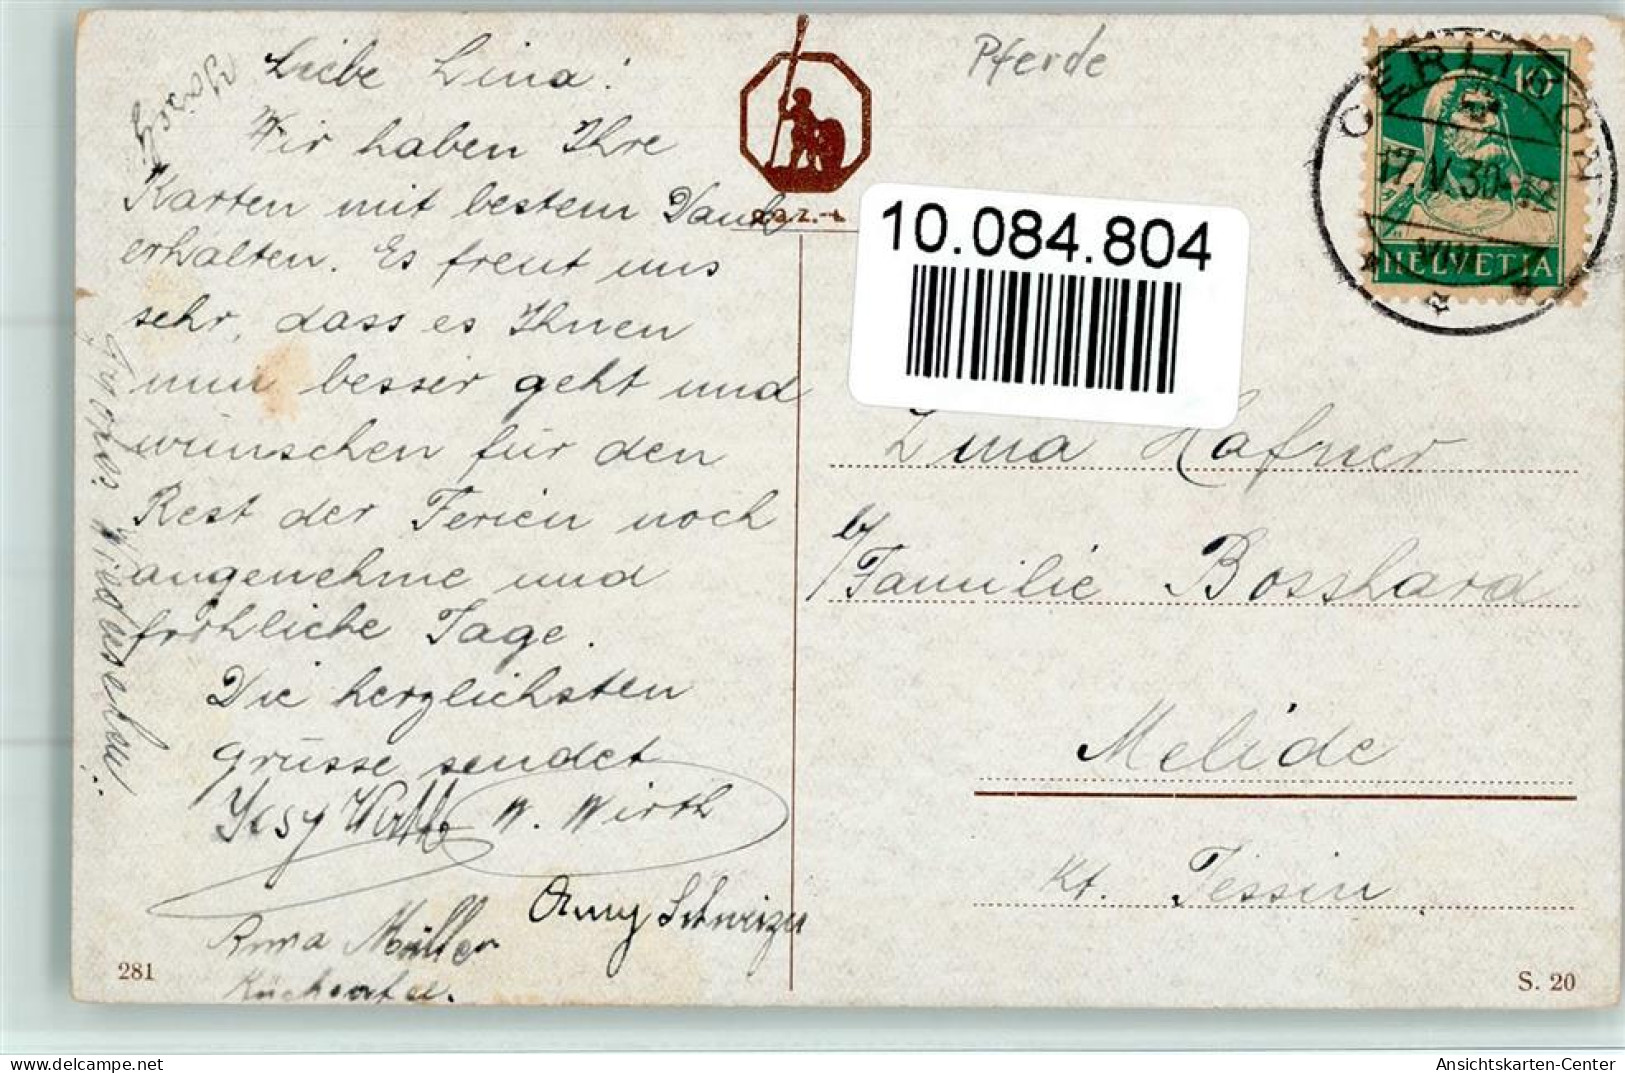 Liebe Lina!
Wir haben Ihre
Karten mit bestem Dank
erhalten. Es freut uns
sehr, dass es Ihnen
nun besser geht und
wünschen für den
Rest der Ferien noch
angenehme und
fröhliche Tage.
Die herzlichsten
Grüsse sendet
W. Wirth
Müller
Schweizer
Wiedersehen.
281
Pferde
10.084.804
OERLIKON
17. V. 30
VIII
10
HELVETIA
Lina Hafner
b/Familie Bosshard
Melide
Kt. Tessin
S. 20
281
Ansichtskarten-Center